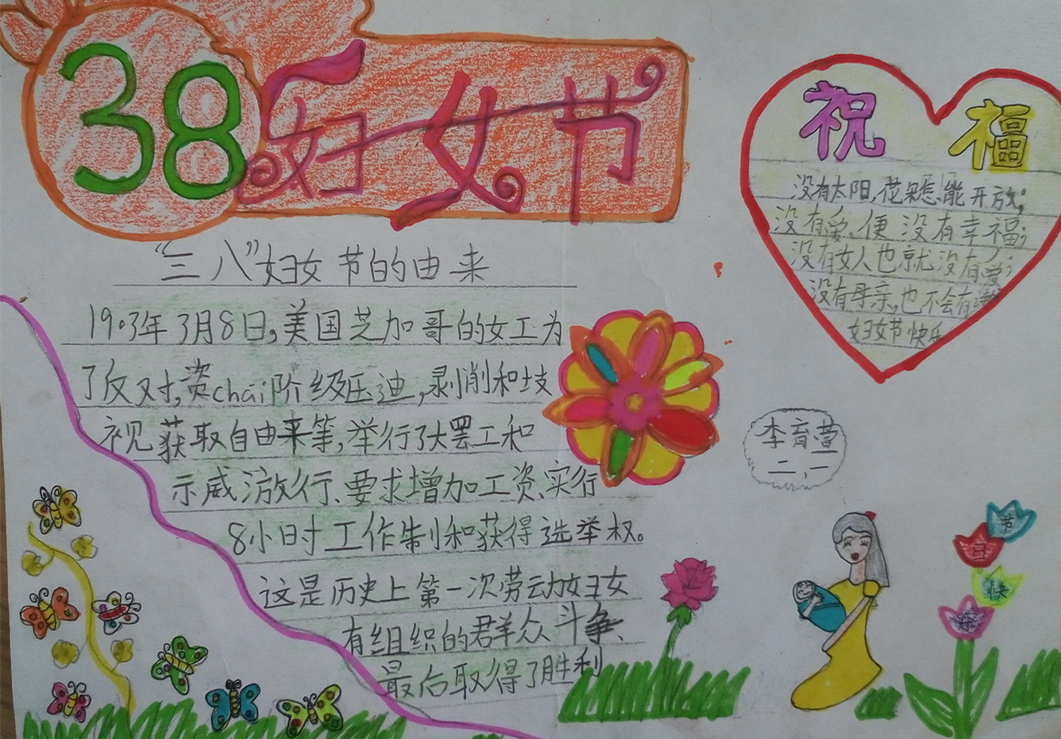 38妇女节
"三八"妇女节的由来
1903年3月8日,美国芝加哥的女工为
了反对,资chai阶级压迪,剥削和歧
视获取自由来等,举行了大罢工和
示威游放行、要求增加工资、实行
8小时工作制和获得选举权。
这是历史上第一次劳动妇女
有组织的群众斗争、
最后取得了胜利
祝福
没有太阳,花朵怎能开放;
没有爱、便没有幸福;
没有女人也就没有爱;
没有母亲,也不会有
妇女节快乐
李育萱
二,一
节
日
快
乐